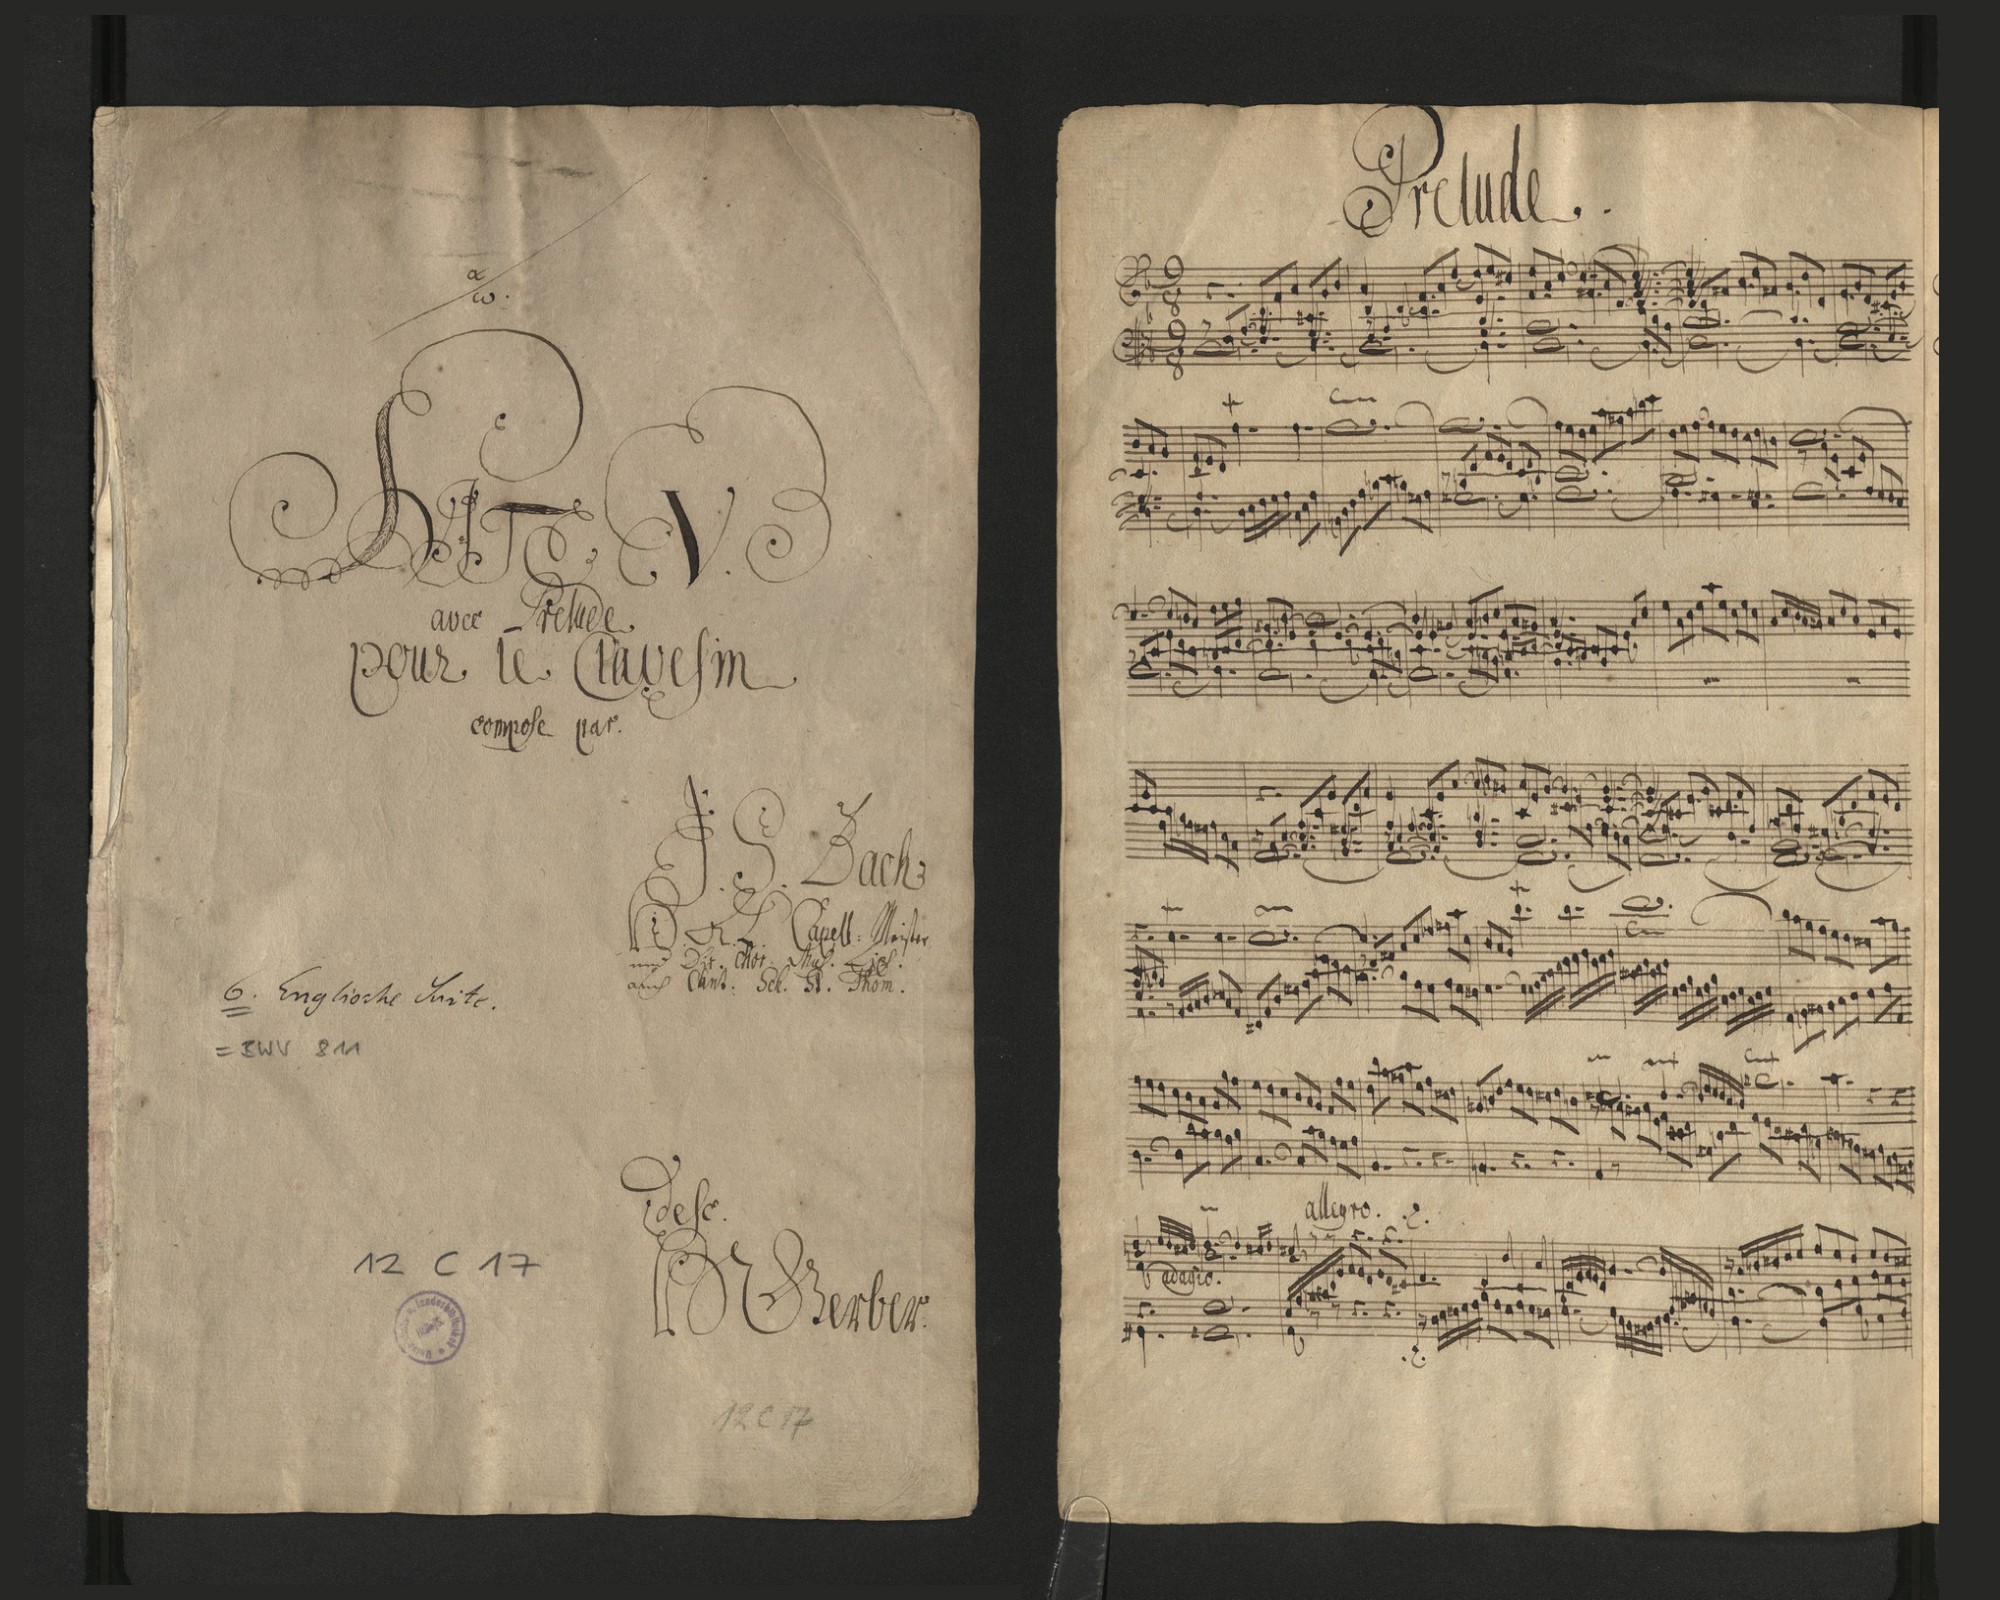 α
ω.
SUITE V.
avec Prelude
pour le Clavesin
compose par.
J. S. Bach
Capell: Meister
und Dir. Chor. Mus. Lips.
auch Cant: Sch. St. Thom.
6. Englische Suite.
= BWV 811
desc.
HN Gerber.
12 C 17
12 C 17
Prelude.
9
8
9
8
allegro.
adagio.